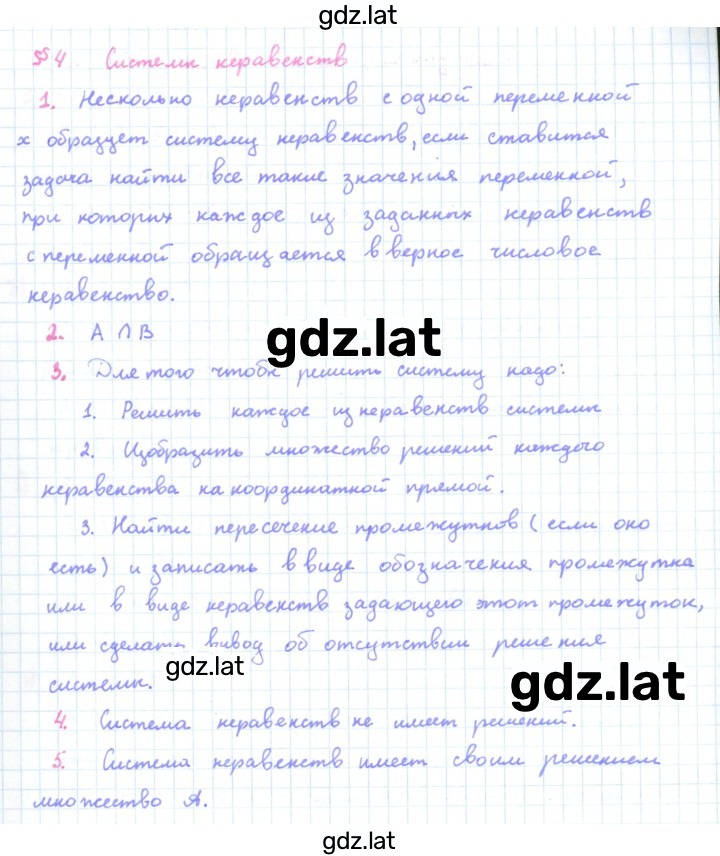 gdz.lat
§4 Системы неравенств
1. Несколько неравенств с одной переменной
x образует систему неравенств, если ставится
задача найти все такие значения переменной,
при которых каждое из заданных неравенств
с переменной обращается в верное числовое
неравенство.
2. A ∩ B
gdz.lat
3. Для того чтобы решить систему надо:
1. Решить каждое из неравенств системы
2. Изобразить множество решений каждого
неравенства на координатной прямой.
3. Найти пересечение промежутков (если оно
есть) и записать в виде обозначения промежутка
или в виде неравенств задающего этот промежуток,
или сделать вывод об отсутствии решения
gdz.lat
системы.
gdz.lat
4. Система неравенств не имеет решений.
5. Система неравенств имеет своим решением
множество A.
gdz.lat